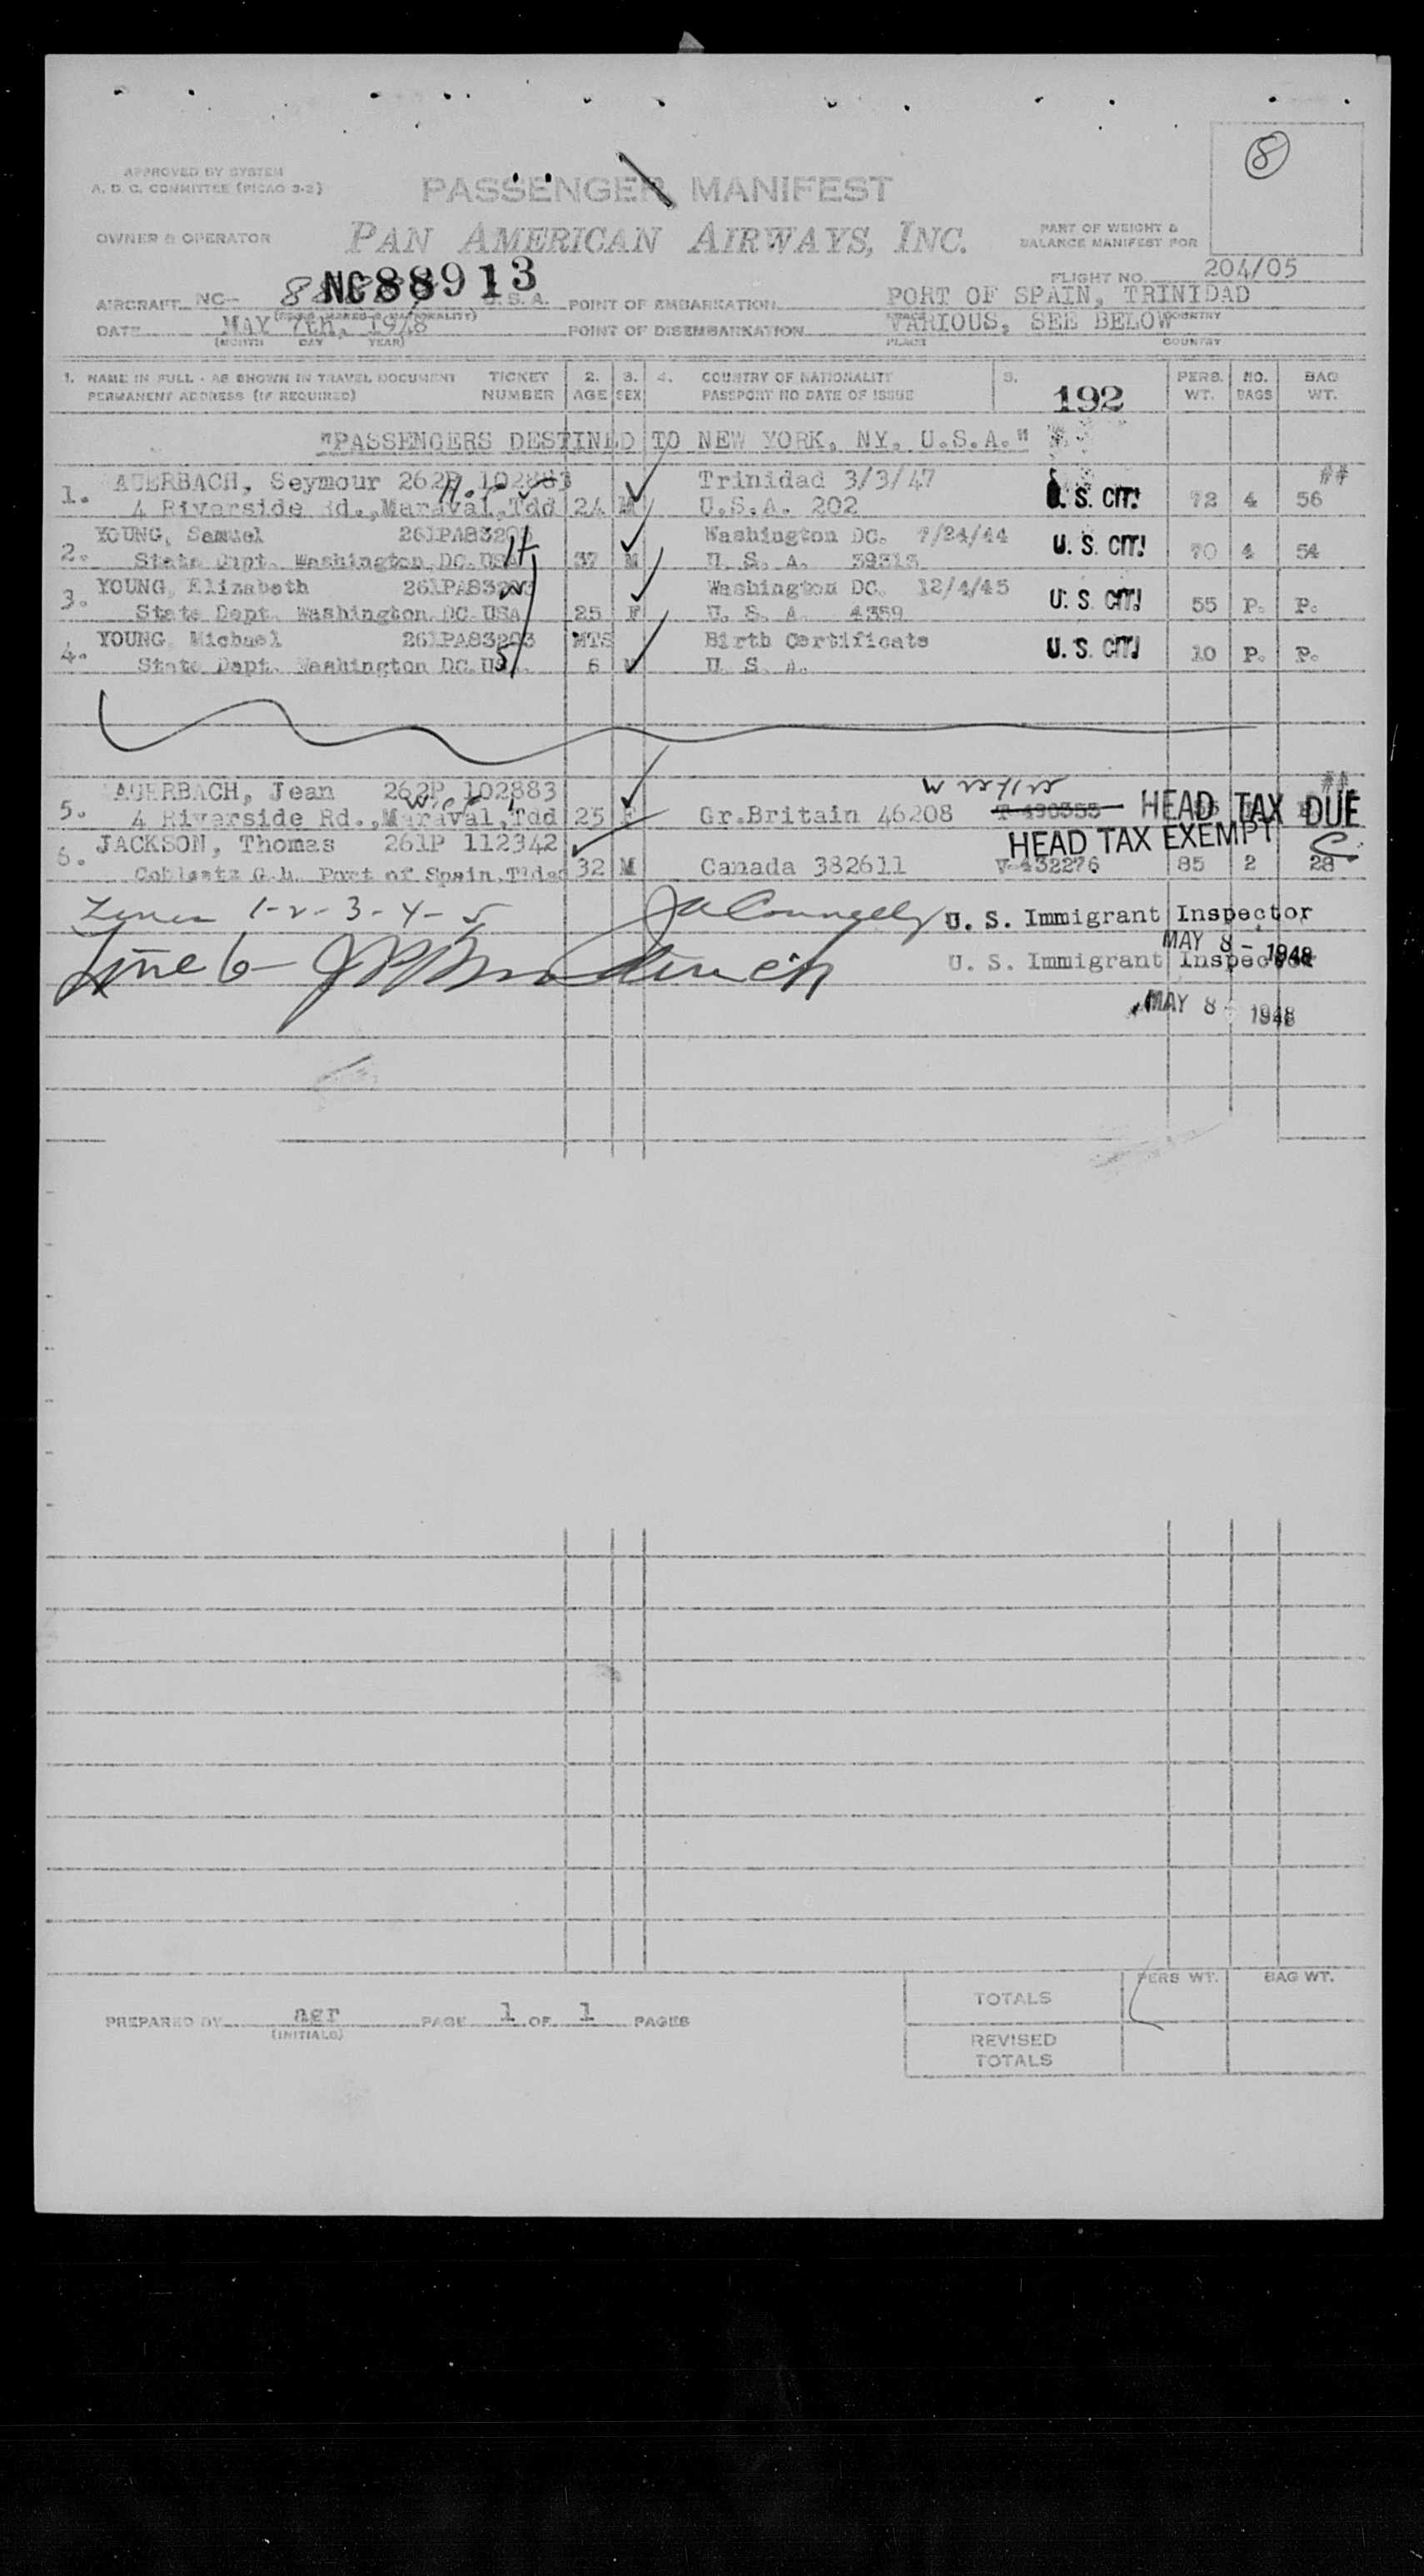 8
APPROVED BY SYSTEM
A. D. C. COMMITTEE (PICAO 3-2)
PASSENGER MANIFEST
OWNER & OPERATOR
PAN AMERICAN AIRWAYS, INC.
PART OF WEIGHT &
BALANCE MANIFEST FOR
FLIGHT NO. 204/05
AIRCRAFT NC- NC88913 U.S.A. POINT OF EMBARKATION PORT OF SPAIN, TRINIDAD
DATE MAY 7th, 1948 POINT OF DISEMBARKATION VARIOUS, SEE BELOW
(MONTH DAY YEAR) PLACE COUNTRY
1. NAME IN FULL - AS SHOWN IN TRAVEL DOCUMENT TICKET 2. 3. 4. COUNTRY OF NATIONALITY 5. PERS. NO. BAG
PERMANENT ADDRESS (IF REQUIRED) NUMBER AGE SEX PASSPORT NO DATE OF ISSUE 192 WT. BAGS WT.
"PASSENGERS DESTINED TO NEW YORK, NY, U.S.A."
1. AUERBACH, Seymour 262P 102883 Trinidad 3/3/47 ##
4 Riverside Rd.,Maraval,Tdd 24 M U.S.A. 202 U. S. CIT! 72 4 56
2. YOUNG, Samuel Washington DC. 7/24/44
State Dept. Washington DC. USA 37 M U. S. A. 39313 U. S. CIT! 70 4 54
3. YOUNG, Elizabeth 261PA83203 Washington DC. 12/4/45
State Dept. Washington DC. USA 25 F U. S. A. 4359 U. S. CIT! 55 P. P.
4. YOUNG, Michael 261PA83203 MTS Birth Certificate
State Dept. Washington DC. 6 M U. S. A. U. S. CIT! 10 P. P.
5. AUERBACH, Jean 262P 102883 ##
4 Riverside Rd.,Maraval,Tdd 25 F Gr.Britain 46208 HEAD TAX DUE
6. JACKSON, Thomas 261P 112342 HEAD TAX EXEMPT
Port of Spain, 32 M Canada 382611 V-432276 85 2 28
Lines 1-2-3-4-5 U. S. Immigrant Inspector
MAY 8 - 1948
Line 6 U. S. Immigrant Inspector
MAY 8 - 1948
PERS WT. BAG WT.
TOTALS
PREPARED BY agr PAGE 1 OF 1 PAGES
(INITIALS)
REVISED
TOTALS